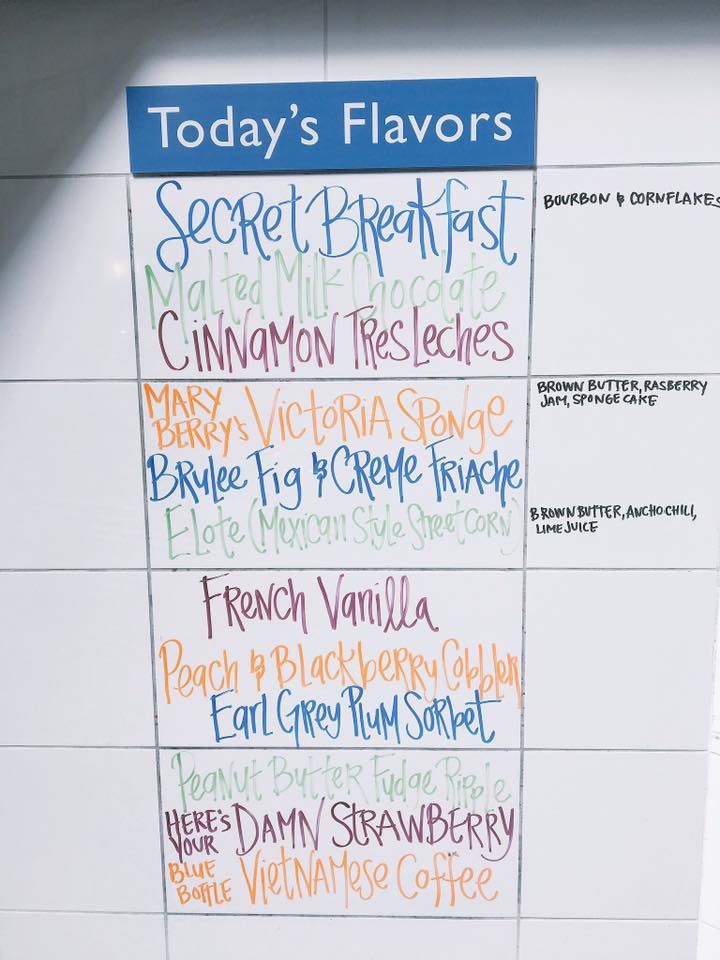 Today's Flavors
Secret Breakfast
BOURBON & CORNFLAKES
Malted Milk Chocolate
Cinnamon Tres Leches
MARY BERRY'S Victoria Sponge
BROWN BUTTER, RASBERRY
JAM, SPONGE CAKE
Brulee Fig & Creme Friache
Elote (Mexican Style Street Corn)
BROWN BUTTER, ANCHO CHILI,
LIME JUICE
French Vanilla
Peach & Blackberry Cobbler
Earl Grey Plum Sorbet
Peanut Butter Fudge Ripple
HERE'S YOUR DAMN STRAWBERRY
BLUE BOTTLE Vietnamese Coffee